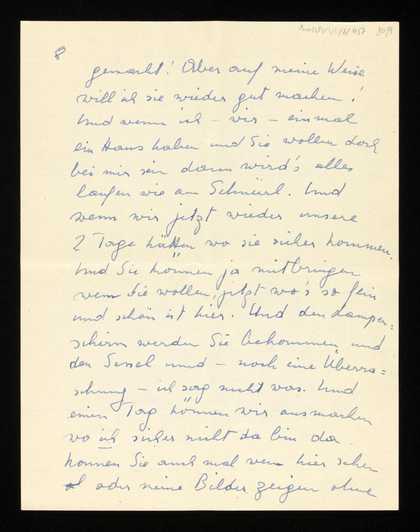 8
gemacht! Aber auf meine Weise
will ich sie wieder gut machen!
Und wenn ich – wir – einmal
ein Haus haben und Sie wollen doch
bei mir sein dann wird's alles
laufen wie am Schnürl. Und
wenn wir jetzt wieder unsere
2 Tage hätten wo sie sicher kommen.
Und Sie können ja mitbringen
wen Sie wollen, jetzt wo's so fein
und schön ist hier. Und den Lampen-
schirm werden Sie bekommen und
den Sessel und – noch eine Überra-
schung – ich sag nicht was. Und
einen Tag können wir ausmachen
wo ich sicher nicht da bin da
können Sie auch mal wen hier sehen
oder meine Bilder zeigen ohne